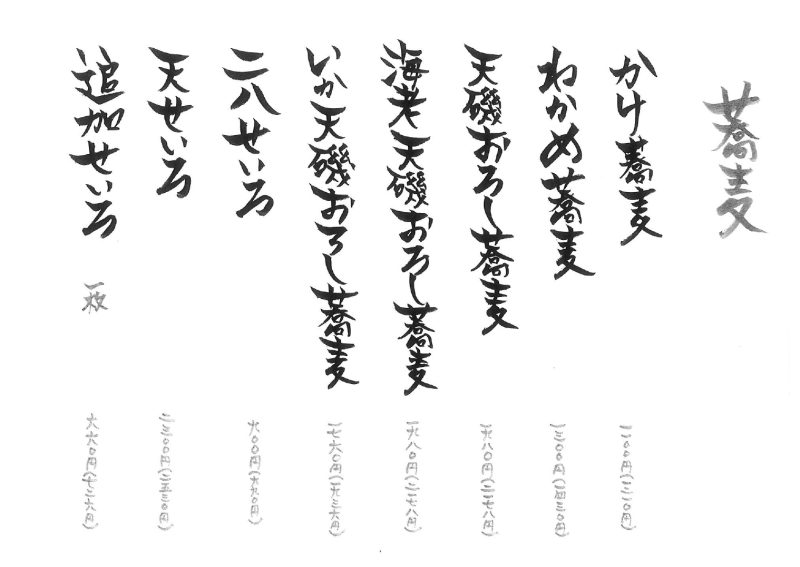 蕎麦
かけ蕎麦 一一〇〇円(一二一〇円)
わかめ蕎麦 一三〇〇円(一四三〇円)
天磯おろし蕎麦 一九八〇円(二一七八円)
海老天磯おろし蕎麦 一九八〇円(二一七八円)
いか天磯おろし蕎麦 一七六〇円(一九三六円)
二八せいろ 九〇〇円(九九〇円)
天せいろ 二三〇〇円(二五三〇円)
追加せいろ 一枚 六六〇円(七二六円)